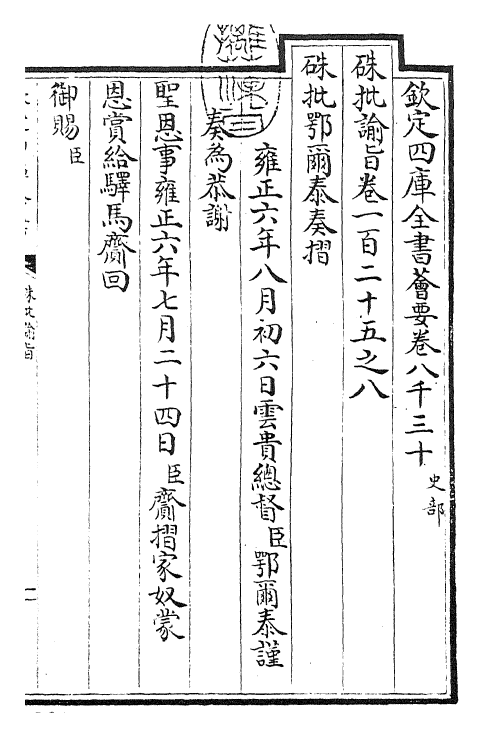 欽定四庫全書薈要卷八千三十 史部
硃批諭旨卷一百二十五之八
硃批鄂爾泰奏摺
雍正六年八月初六日雲貴總督臣鄂爾泰謹
奏為恭謝
聖恩事雍正六年七月二十四日臣齎摺家奴蒙
恩賞給驛馬齎回
御賜臣
硃批諭旨
一